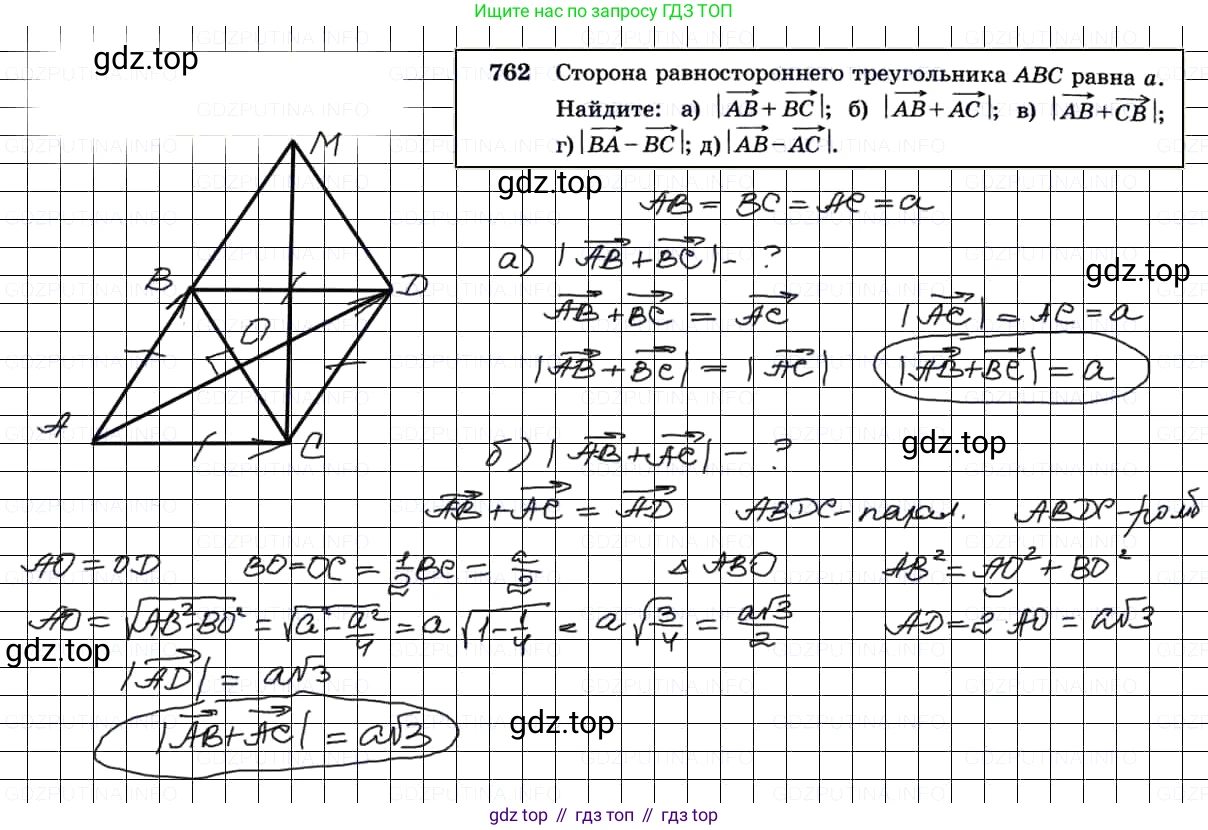 Ищите нас по запросу ГДЗ ТОП
gdz.top
762 Сторона равностороннего треугольника ABC равна a.
Найдите: а) |AB + BC|; б) |AB + AC|; в) |AB + CB|;
г) |BA − BC|; д) |AB − AC|.
gdz.top
M
B
D
O
A
C
AB = BC = AC = a
а) |AB + BC| - ?
gdz.top
AB + BC = AC |AC| = AC = a
|AB + BC| = |AC| |AB + BC| = a
gdz.top
б) |AB + AC| - ?
AB + AC = AD ABDC - парал. ABDC - ромб
AO = OD BO = OC = 1/2 BC = a/2 △ ABO AB² = AO² + BO²
AO = √(AB² - BO²) = √(a² - a²/4) = a √(1 - 1/4) = a √(3/4) = a√3/2 AD = 2 AO = a√3
gdz.top
|AD| = a√3
|AB + AC| = a√3
gdz.top
gdz top // гдз топ // gdz top
GDZPUTINA.INFO